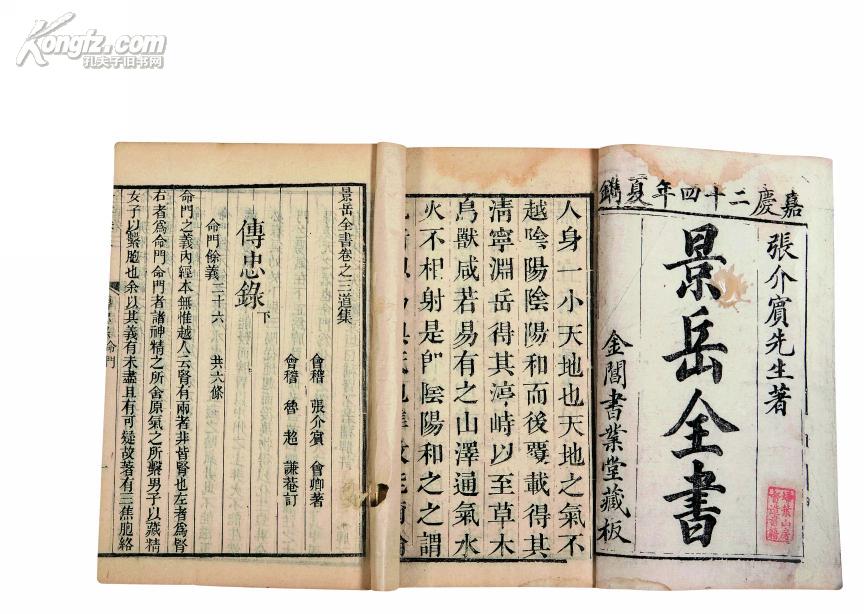 Kongfz.com
孔夫子旧书网
嘉慶二十四年夏鐫
張介賓先生著
景岳全書
金閶書業堂藏板
人身一小天地也天地之氣不
越陰陽陰陽和而後覆載得其
清寧淵岳得其渟峙以至草木
鳥獸咸若易有之山澤通氣水
火不相射是卽陰陽和之之謂
景岳全書卷之三道集
會稽 張介賓 會卿著
會稽 魯超 謙菴訂
傳忠錄 下
命門餘義二十六 共六條
命門之義內經本無惟越人云腎有兩者非皆腎也左者爲腎
右者爲命門命門者諸神精之所舍原氣之所繫男子以藏精
女子以繫胞也余以其義有未盡且有可疑故著有三焦胞絡